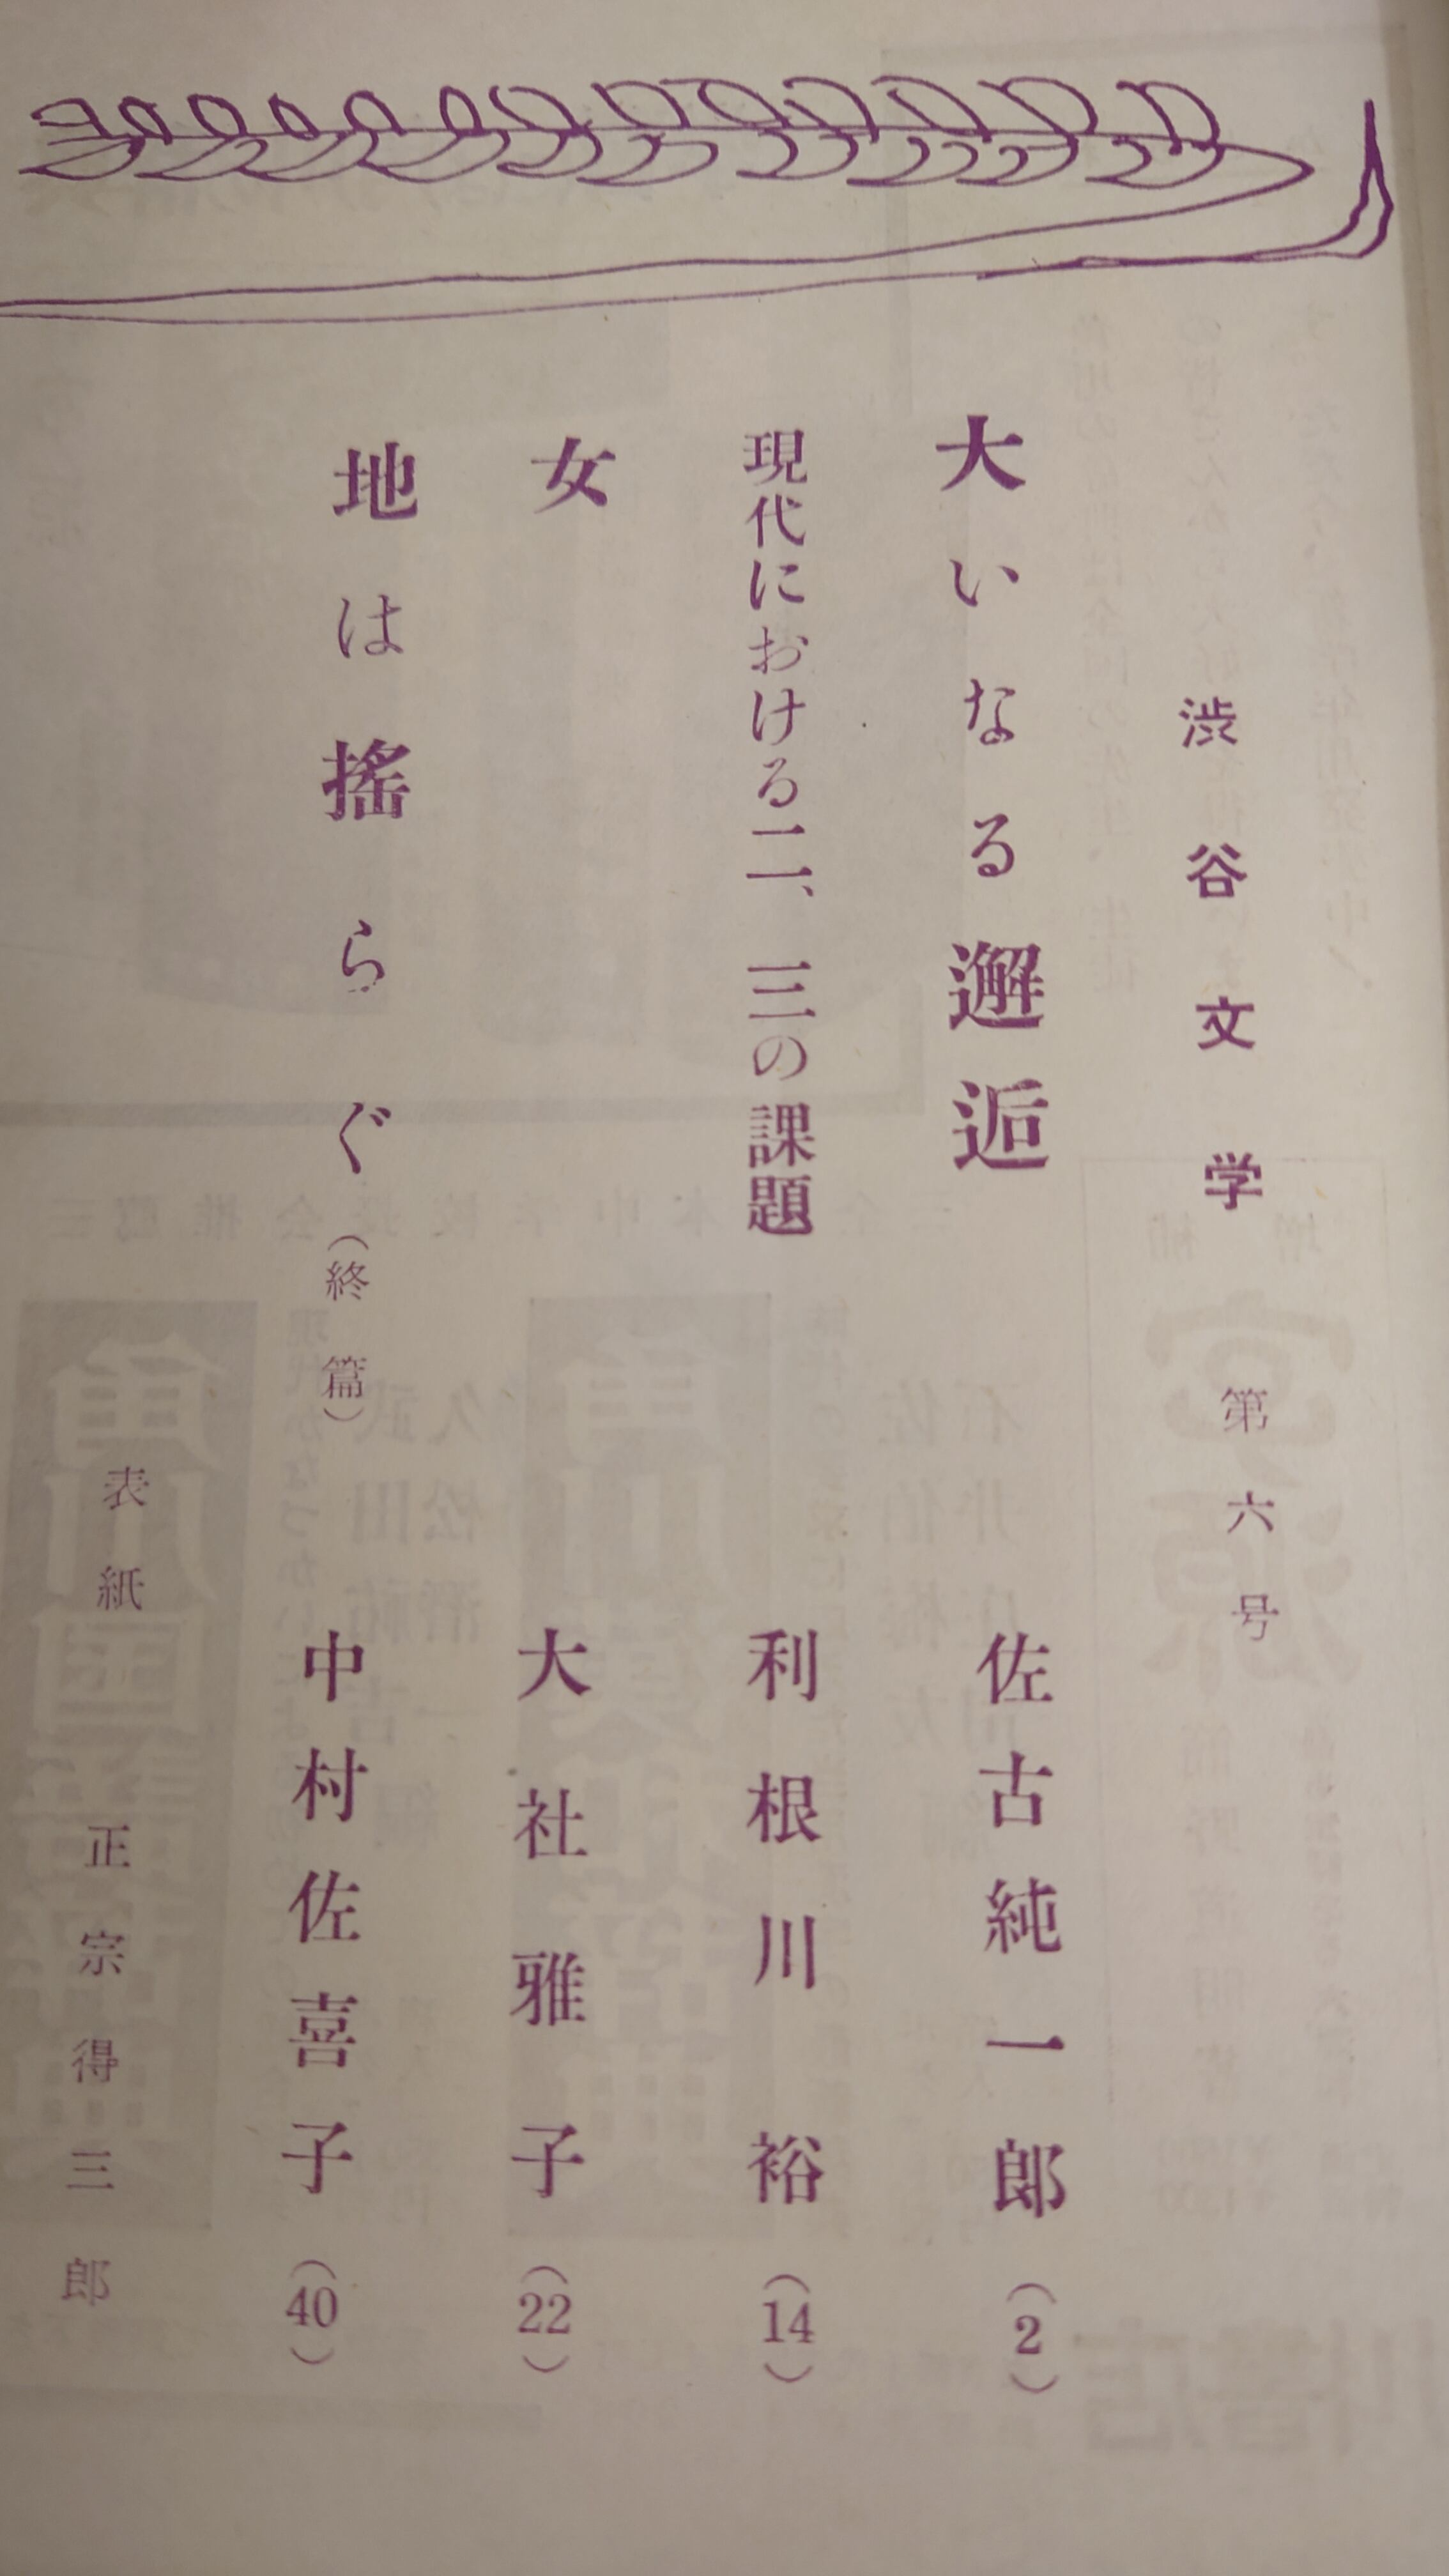 渋谷文学 第六号
大いなる邂逅 佐古純一郎 (2)
現代における二、三の課題 利根川裕 (14)
女 大社雅子 (22)
地は搖らぐ(終篇) 中村佐喜子 (40)
表紙 正宗得三郎